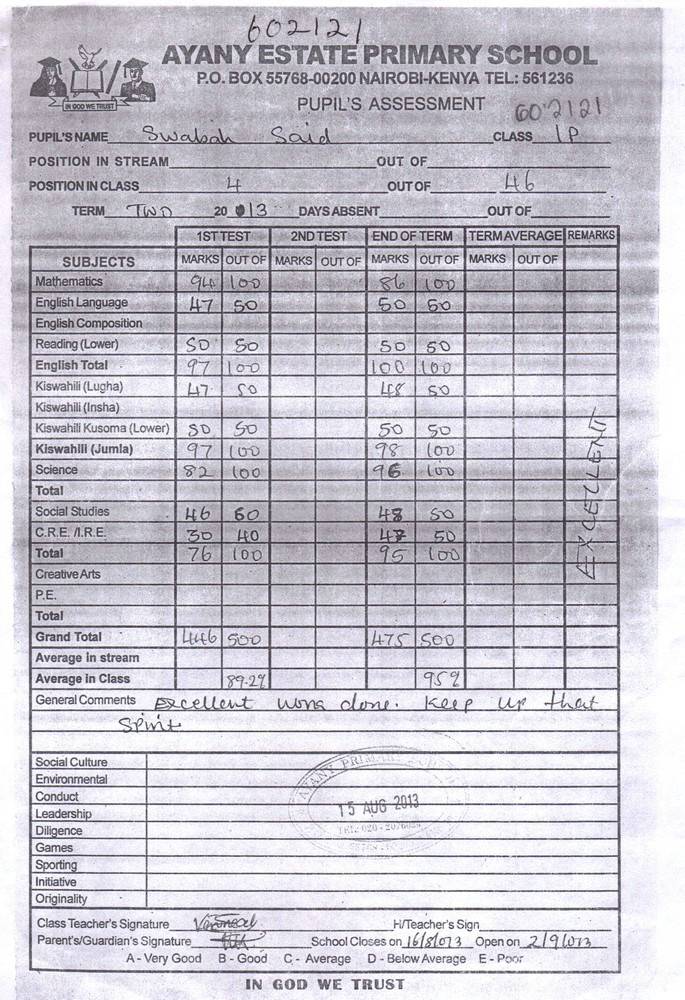 602121
AYANY ESTATE PRIMARY SCHOOL
P.O. BOX 55768-00200 NAIROBI-KENYA TEL: 561236
IN GOD WE TRUST
PUPIL'S ASSESSMENT 602121
PUPIL'S NAME Swabah Said CLASS 1P
POSITION IN STREAM OUT OF
POSITION IN CLASS 4 OUT OF 46
TERM TWO 20 13 DAYS ABSENT OUT OF
1ST TEST 2ND TEST END OF TERM TERM AVERAGE REMARKS
SUBJECTS MARKS OUT OF MARKS OUT OF MARKS OUT OF MARKS OUT OF
Mathematics 94 100 86 100
English Language 47 50 50 50
English Composition
Reading (Lower) 50 50 50 50
English Total 97 100 100 100
Kiswahili (Lugha) 47 50 48 50
Kiswahili (Insha)
Kiswahili Kusoma (Lower) 50 50 50 50
Kiswahili (Jumla) 97 100 98 100
Science 82 100 96 100
EXCELLENT
Total
Social Studies 46 60 48 50
C.R.E. /I.R.E. 30 40 47 50
Total 76 100 95 100
Creative Arts
P.E.
Total
Grand Total 446 500 475 500
Average in stream
Average in Class 89.2% 95%
General Comments Excellent work done. Keep up that
Spirit
Social Culture
Environmental
Conduct
Leadership
Diligence
Games
Sporting
Initiative
Originality
AYANY PRIMARY
15 AUG 2013
Class Teacher's Signature H/Teacher's Sign
Parent's/Guardian's Signature School Closes on 16/8/013 Open on 2/9/013
A - Very Good B - Good C - Average D - Below Average E - Poor
IN GOD WE TRUST